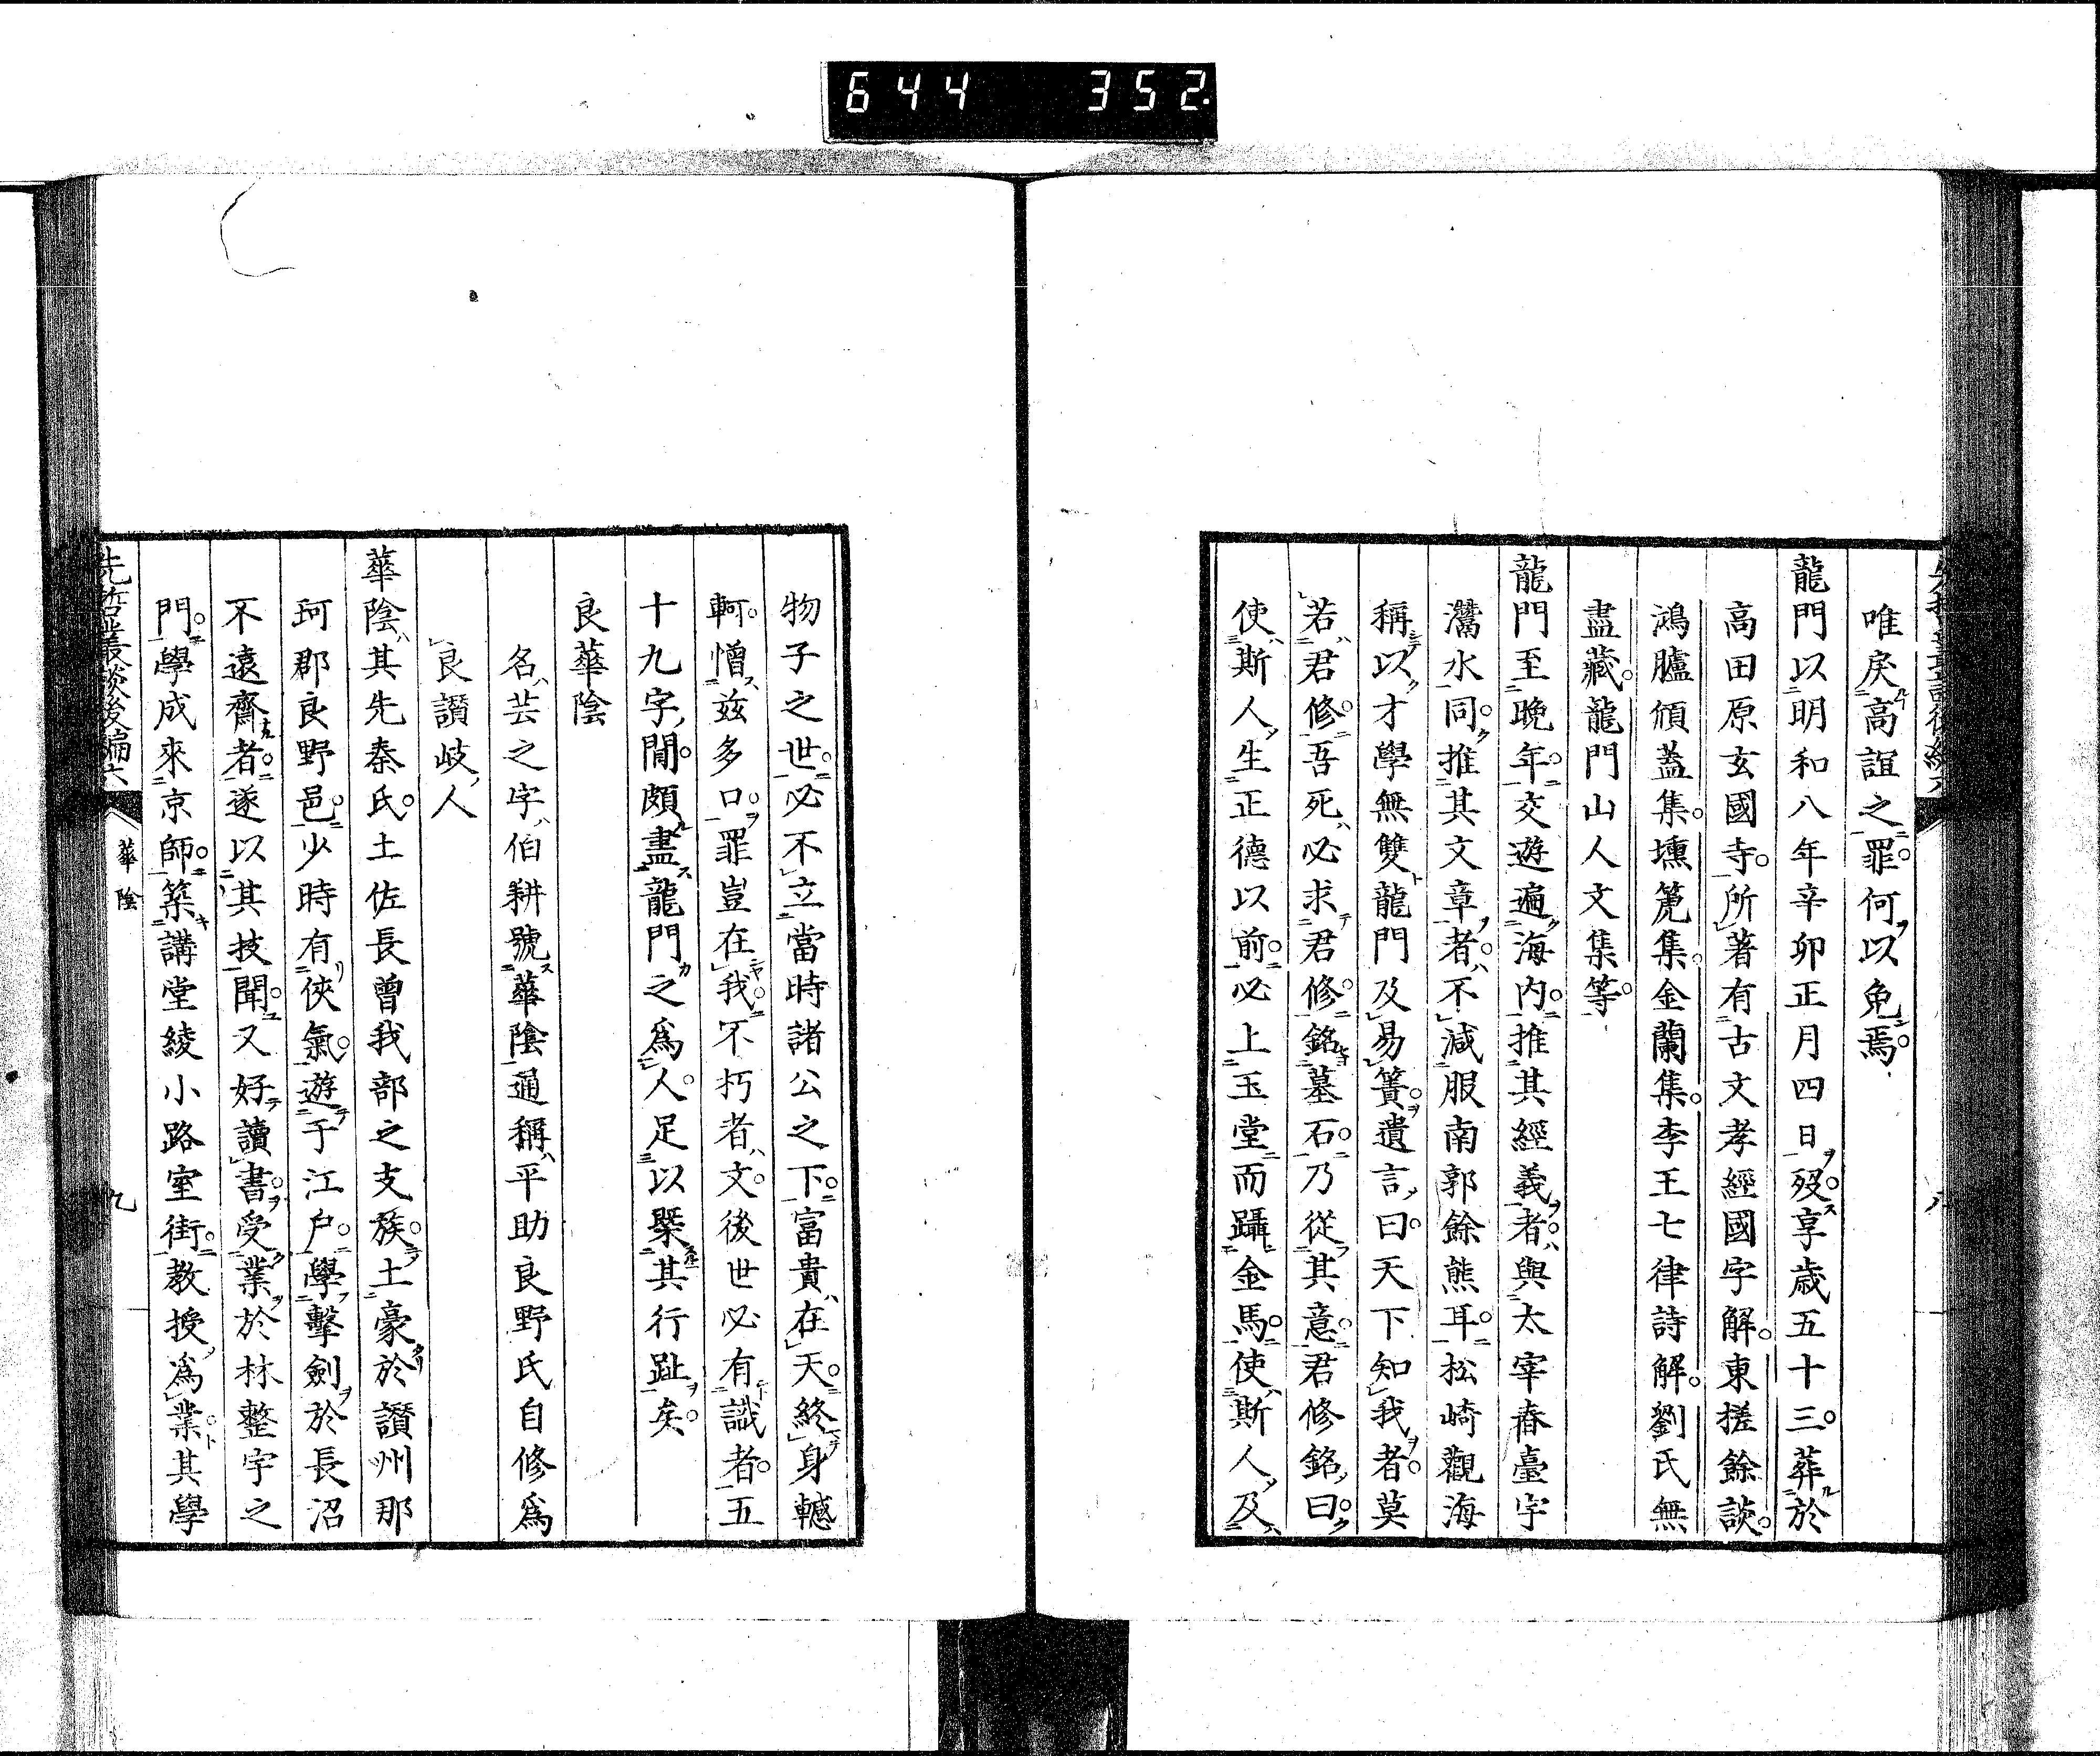 644 352
唯戾高誼之罪何以免焉
龍門以明和八年辛卯正月四日歿享歲五十三葬於
高田原玄國寺所著有古文孝經國字解東槎餘談
鴻臚傾蓋集壎篪集金蘭集李王七律詩解劉氏無
盡藏龍門山人文集等
龍門至晚年交遊遍海内推其經義者與太宰春臺宇
灊水同推其文章者不減服南郭餘熊耳松崎觀海
稱以才學無雙龍門及易簀遺言曰天下知我者莫
若君修吾死必求君修銘墓石乃從其意君修銘曰
使斯人生正德以前必上玉堂而躡金馬使斯人及
物子之世必不立當時諸公之下富貴在天終身轗
軻憎茲多口罪豈在我不朽者文後世必有識者五
十九字閒頗盡龍門之爲人足以槩其行趾矣
良華陰
名芸之字伯耕號華陰通稱平助良野氏自修爲
良讃岐人
華陰其先秦氏土佐長曾我部之支族土豪於讃州那
珂郡良野邑少時有俠氣遊于江戶學擊劍於長沼
不遠齋者遂以其技聞又好讀書受業於林整宇之
門學成來京師築講堂綾小路室街教授爲業其學
先哲叢談後編六
華陰
九